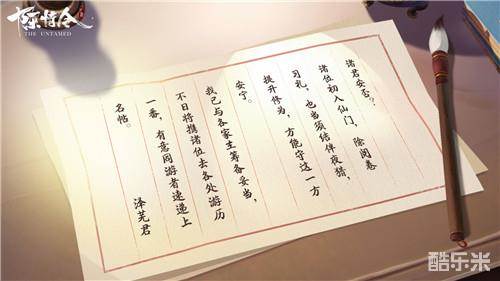 陈情令
THE UNTAMED
诸君安否？
诸位初入仙门，除阅卷
习礼，也当须结伴夜猎，
提升修为，方能守这一方
安宁。
我已与各家主筹备妥当，
不日将携诸位去各处游历
一番，有意同游者速递上
名帖。
泽芜君
酷乐米